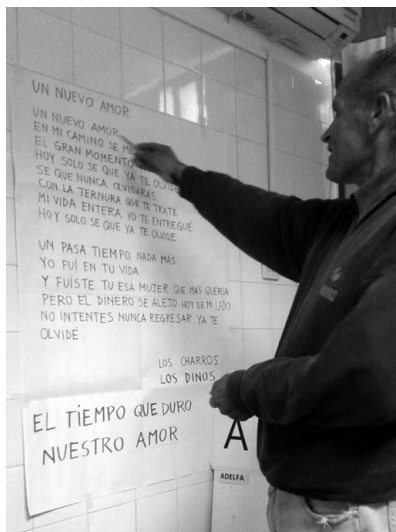 UN NUEVO AMOR
UN NUEVO AMOR
EN MI CAMINO SE
EL GRAN MOMENTO
HOY SOLO SE QUE YA TE OLVIDE
SE QUE NUNCA OLVIDARAS
CON LA TERNURA QUE TE TRATE
MI VIDA ENTERA, YO TE ENTREGUE
HOY SOLO SE QUE YA TE OLVIDE
UN PASA TIEMPO NADA MÁS
YO FUÍ EN TU VIDA
Y FUÍSTE TU ESA MUJER QUE MÁS QUERIA
PERO EL DINERO SE ALEJO HOY DE MI LADO
NO INTENTES NUNCA REGRESAR YA TE
OLVIDÉ.
LOS CHARROS
LOS DINOS
EL TIEMPO QUE DURO
NUESTRO AMOR
A
ADELFA